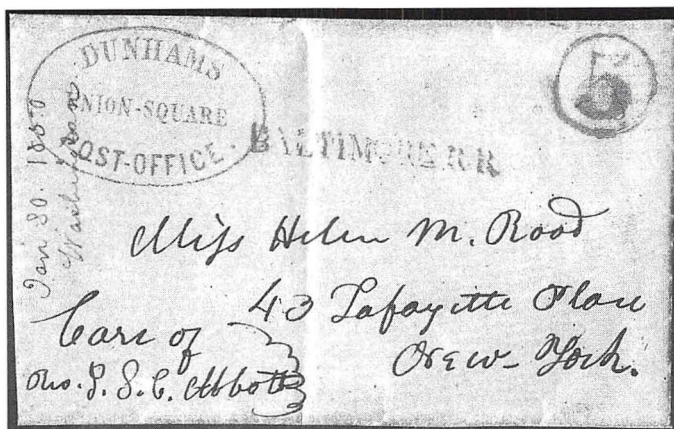 DUNHAMS
NION-SQUARE
POST-OFFICE.
BALTIMORE R.R
5
Jan 30. 1850
Washington
Miss Helen M. Rood
43 Lafayette Place
New-York.
Care of
J. S. C. Abbott